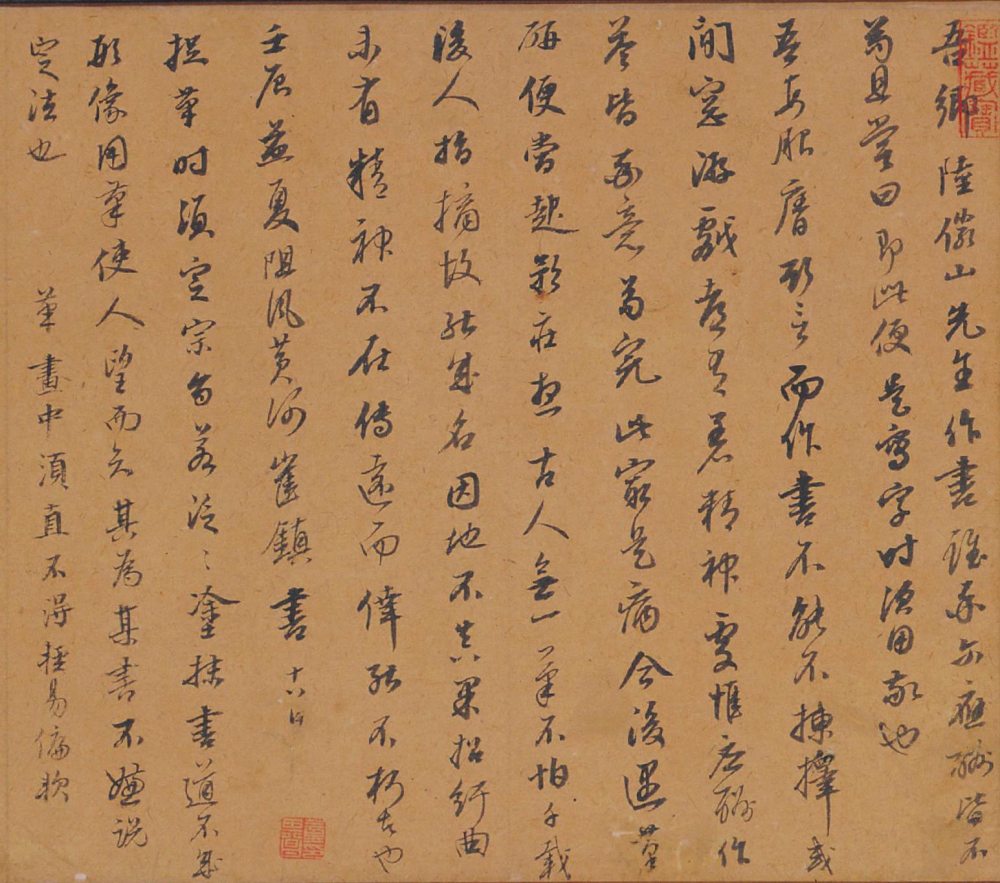 吾鄉陸儼山先生作書雖率爾應酬皆不
苟且嘗曰即此便是寫字時須用敬也
吾每服膺斯言而作書不能不揀擇或
閒窓游戲都有着精神處惟應酬作
答皆率意苟完此最是病今後遇筆
研便當起矜莊想古人無一筆不怕千載
後人指摘故能成名因地不真果招紆曲
未有精神不在傳遠而倖能不朽者也
壬辰孟夏阻風黃河崔鎮書 十八日
捉筆時須定宗旨若泛泛塗抹書道不成
形像用筆使人望而知其為某書不嫌說
定法也
筆畫中須直不得輕易偏軟
鑑藏寶